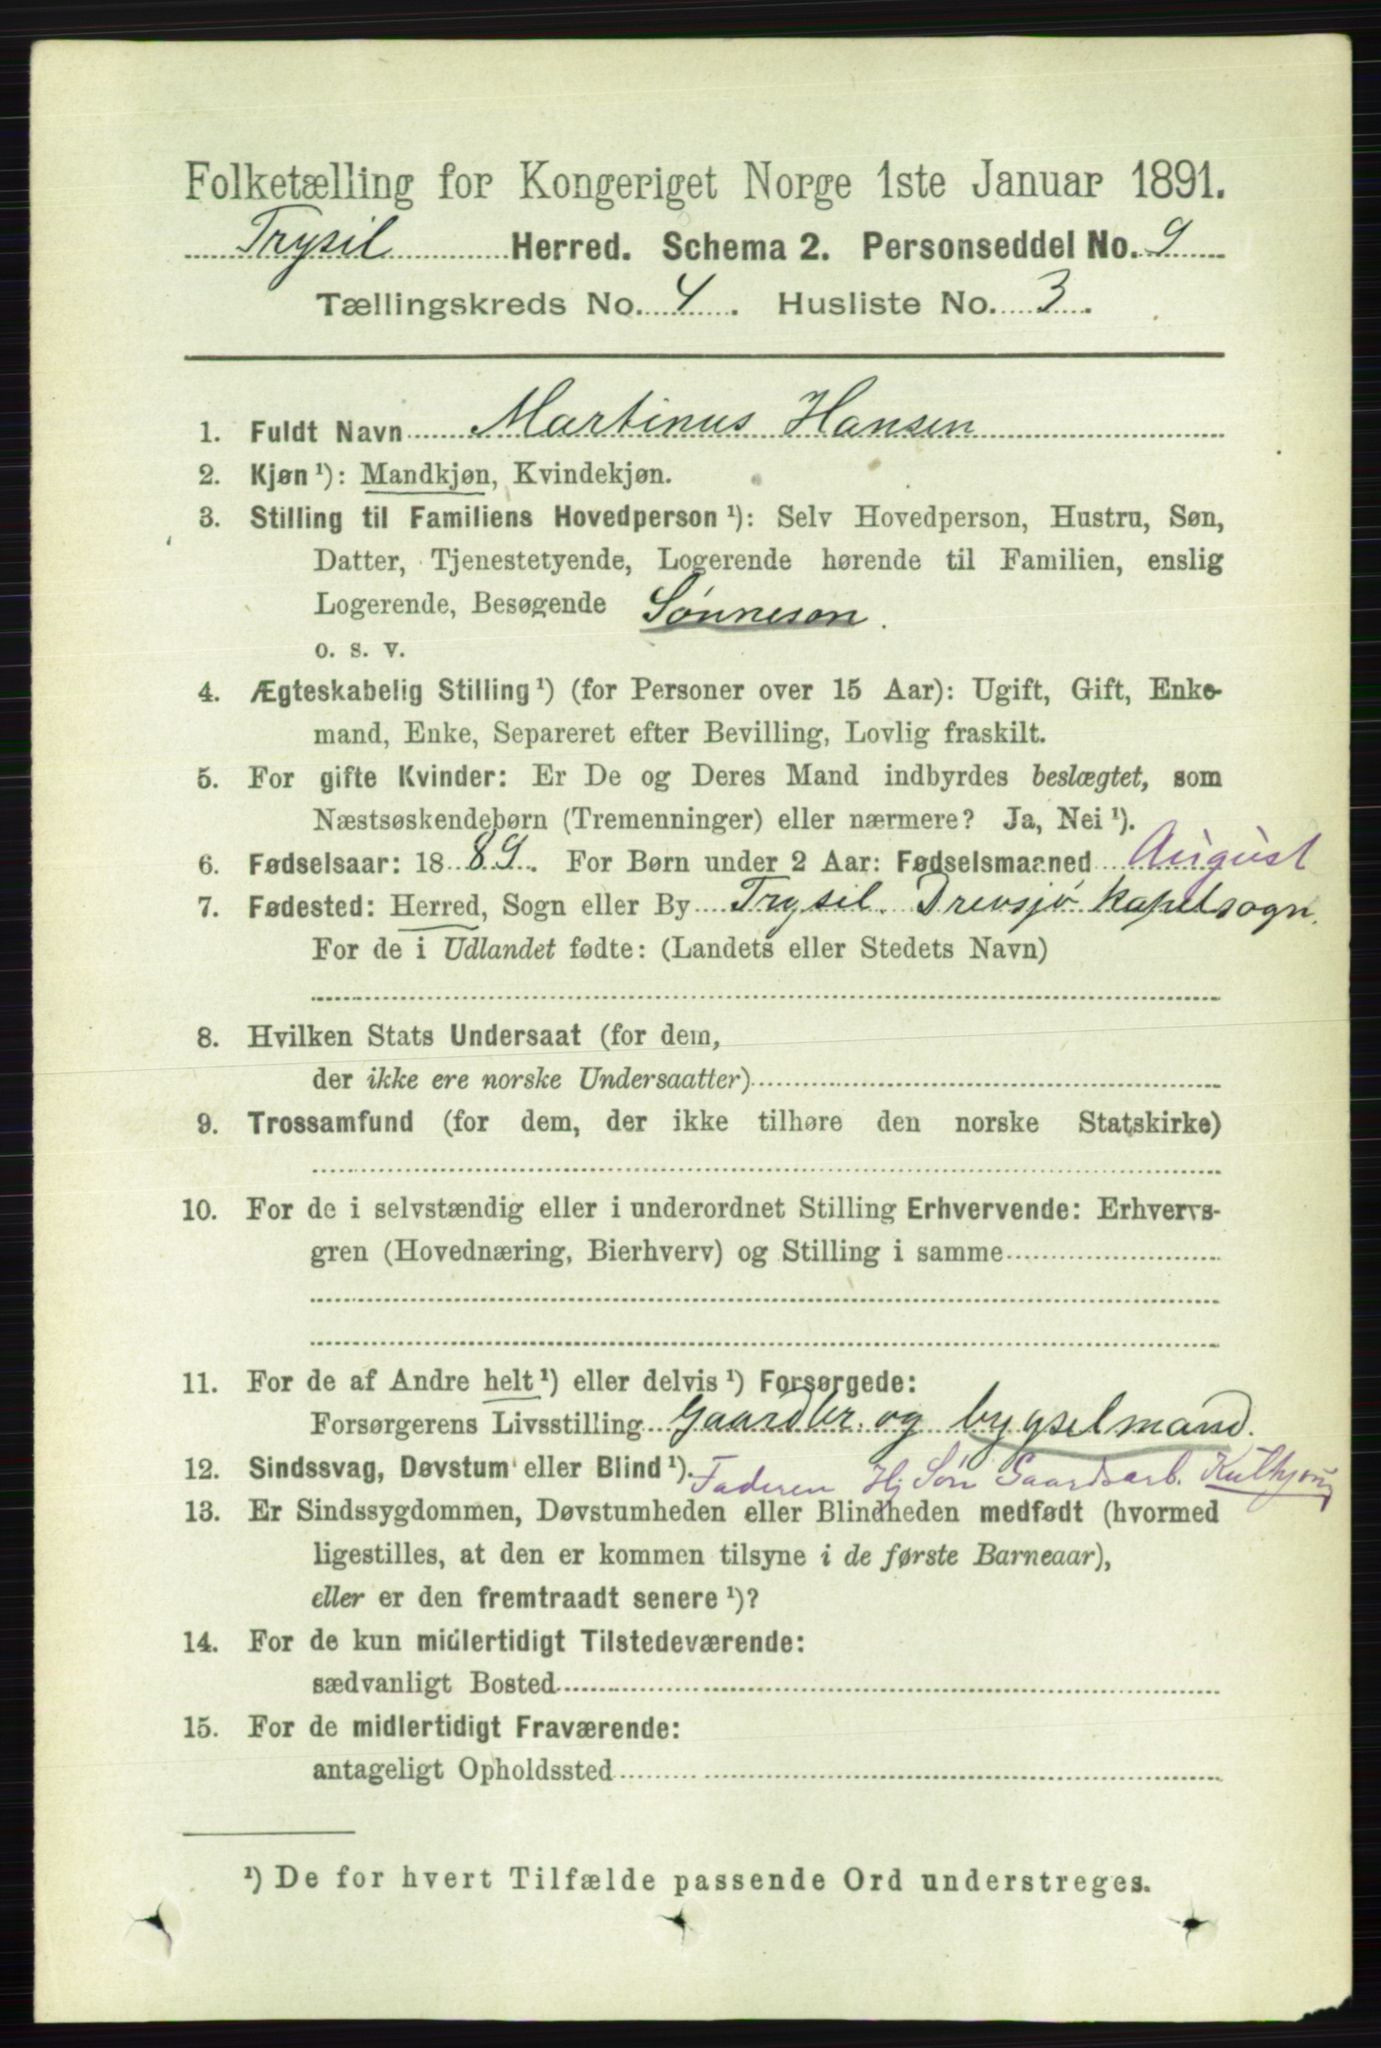 Folketælling for Kongeriget Norge 1ste Januar 1891.
Trysil Herred. Schema 2. Personseddel No. 9
Tællingskreds No. 4. Husliste No. 3.
1. Fuldt Navn Martinus Hansen
2. Kjøn ¹): Mandkjøn, Kvindekjøn.
3. Stilling til Familiens Hovedperson ¹): Selv Hovedperson, Hustru, Søn,
Datter, Tjenestetyende, Logerende hørende til Familien, enslig
Logerende, Besøgende Sønnesøn.
o. s. v.
4. Ægteskabelig Stilling ¹) (for Personer over 15 Aar): Ugift, Gift, Enke-
mand, Enke, Separeret efter Bevilling, Lovlig fraskilt.
5. For gifte Kvinder: Er De og Deres Mand indbyrdes beslægtet, som
Næstsøskendebørn (Tremenninger) eller nærmere? Ja, Nei ¹).
6. Fødselsaar: 1889. For Børn under 2 Aar: Fødselsmaaned August
7. Fødested: Herred, Sogn eller By Trysil. Drevsjø Kapelsogn.
For de i Udlandet fødte: (Landets eller Stedets Navn)
8. Hvilken Stats Undersaat (for dem,
der ikke ere norske Undersaatter)
9. Trossamfund (for dem, der ikke tilhøre den norske Statskirke)
10. For de i selvstændig eller i underordnet Stilling Erhvervende: Erhvervs-
gren (Hovednæring, Bierhverv) og Stilling i samme
11. For de af Andre helt ¹) eller delvis ¹) Forsørgede:
Forsørgerens Livsstilling Gaardbr. og bygselmand.
12. Sindssvag, Døvstum eller Blind ¹). Faderen Hj Søn Gaardsarb.
13. Er Sindssygdommen, Døvstumheden eller Blindheden medfødt (hvormed
ligestilles, at den er kommen tilsyne i de første Barneaar),
eller er den fremtraadt senere ¹)?
14. For de kun midlertidigt Tilstedeværende:
sædvanligt Bosted
15. For de midlertidigt Fraværende:
antageligt Opholdssted
¹) De for hvert Tilfælde passende Ord understreges.